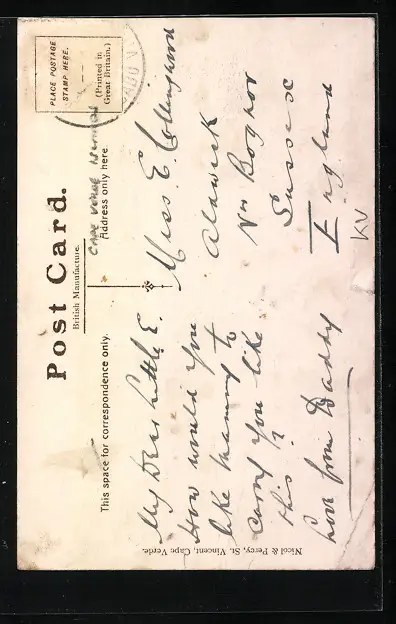 Post Card.
British Manufacture.
PLACE POSTAGE
STAMP HERE.
(Printed in
Great Britain.)
This space for correspondence only.
Address only here
CAPE VERDE ISLANDS
My Dear little E.
How would you
like Mammy to
carry you like
this?
Love from Daddy
Miss E. Collingwood
Aldwick
Nr Bognor
Sussex
England
KV
Nicol & Percy, St. Vincent, Cape Verde.